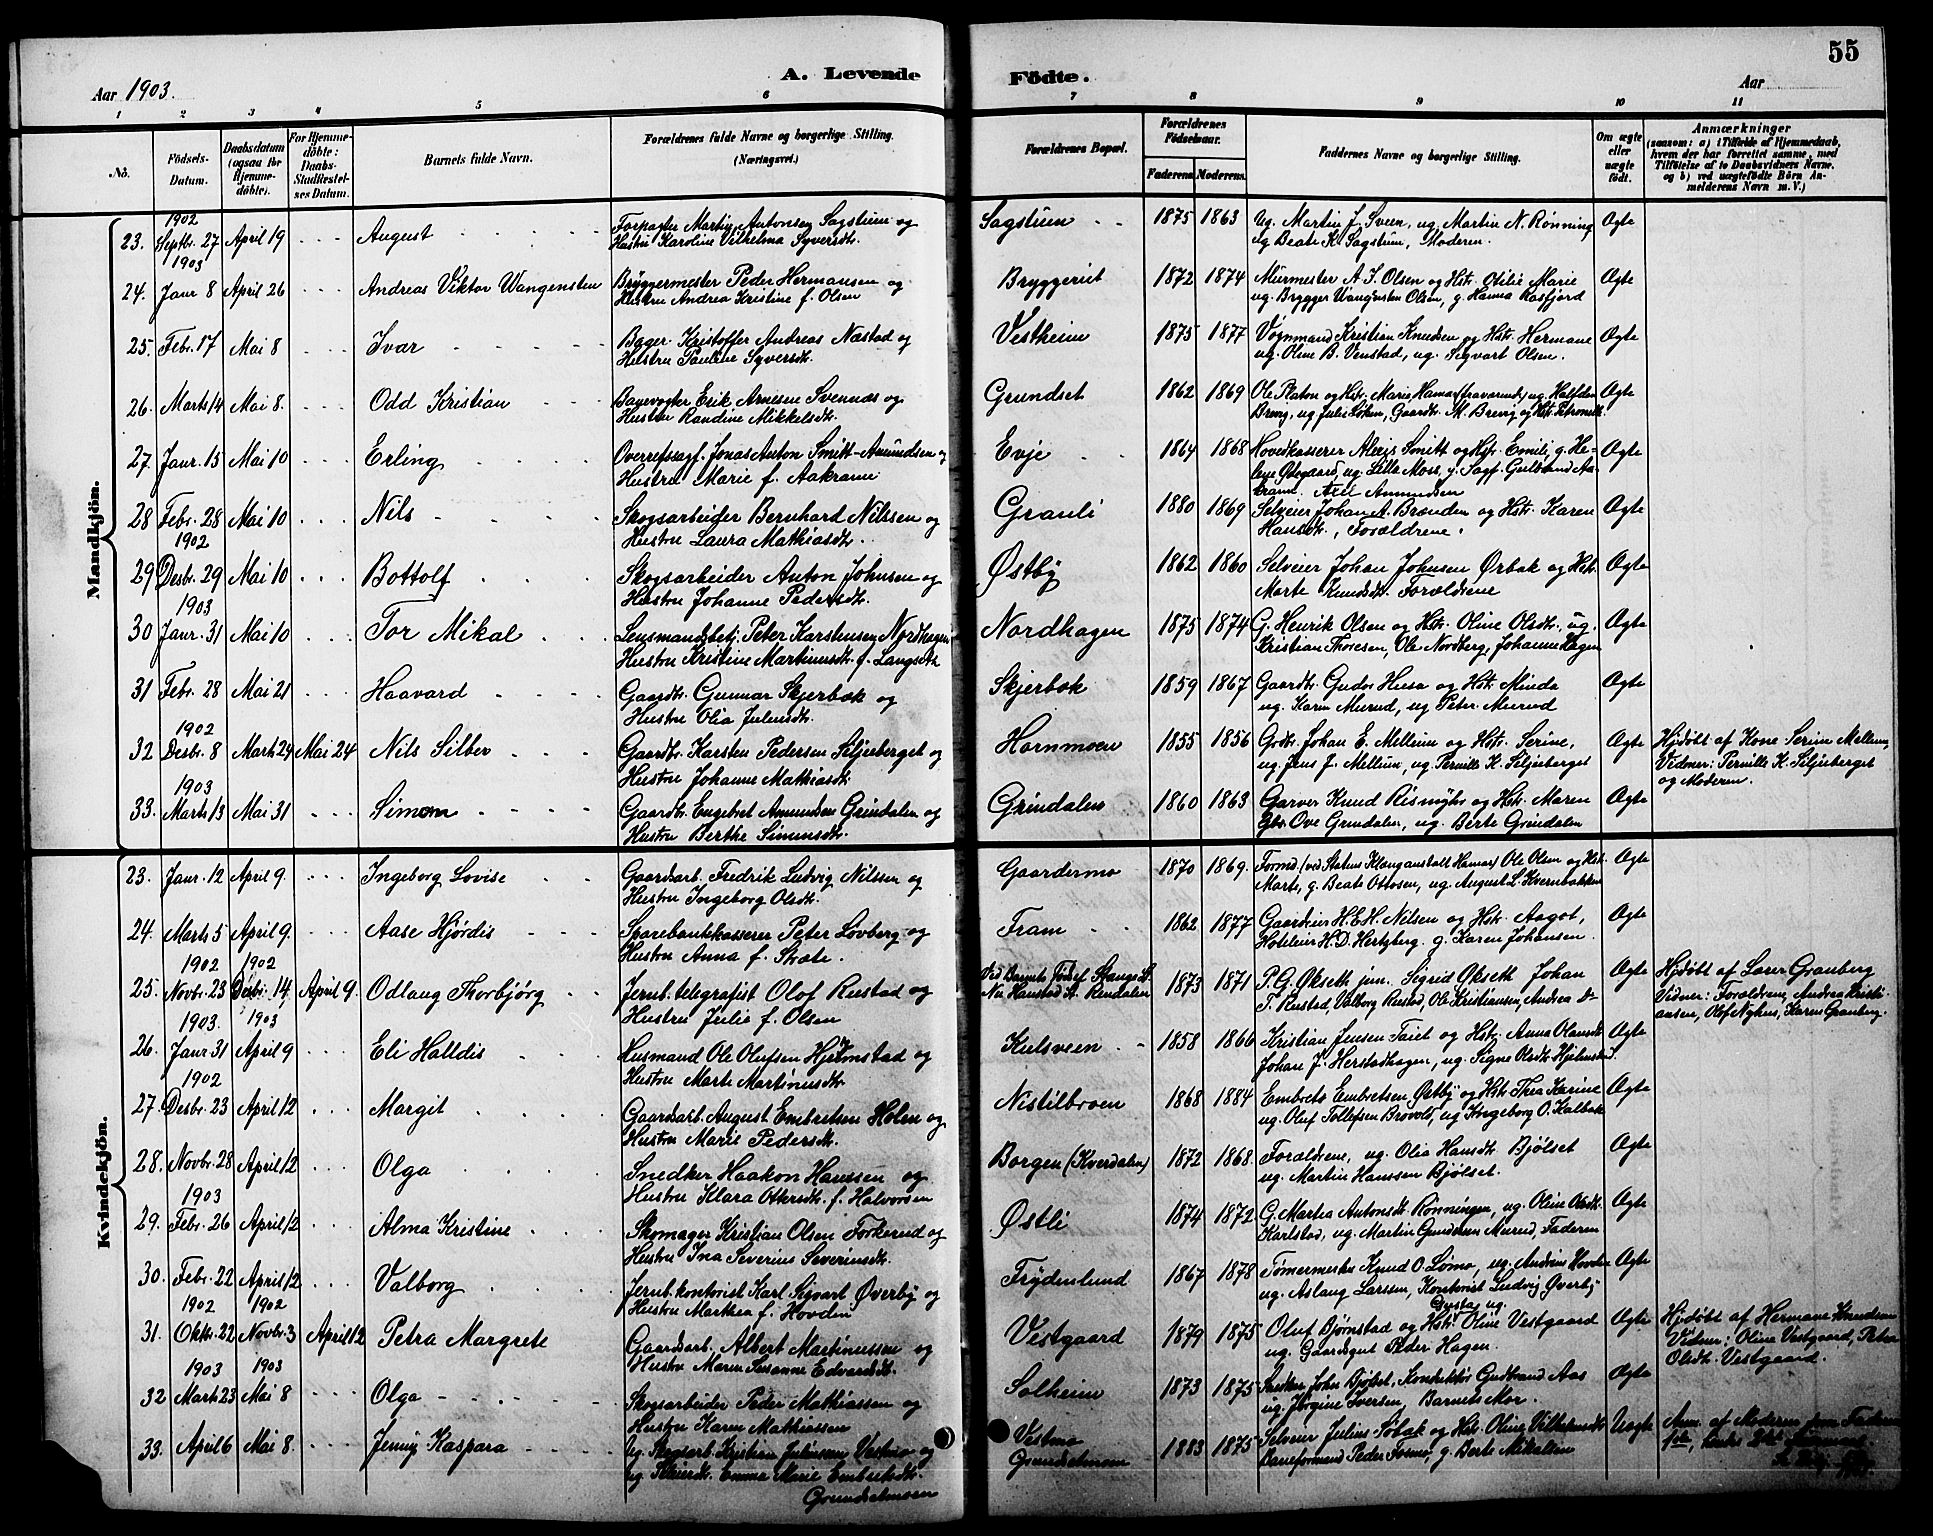 55
A. Levende Födte.
Aar 1903.
Aar
1 2 3 4 5 6 7 8 9 10 11
No.
Födsels-Datum.
Daabsdatum (ogsaa for Hjemmedöbte).
For Hjemmedöbte: Daabs-Stadfæstelses Datum.
Barnets fulde Navn.
Forældrenes fulde Navne og borgerlige Stilling. (Næringsvei.)
Forældrenes Bopæl.
Forældrenes Födselsaar.
Faderens. Moderens.
Faddernes Navne og borgerlige Stilling.
Om ægte eller uægte födt.
Anmærkninger
(saasom: a) i Tilfælde af Hjemmedaab, hvem der har forrettet samme, med Tilföielse af to Daabsvidners Navne, og b) ved uægtefödte Börn Anmelderens Navn m. V.)
Mandkjön.
1902
23. Septbr. 27 April 19 August Forpagter Martin Antonsen Sagstuen og Sagstuen 1875 1863 Ug. Martin J. Sveen, ug. Martin N. Rønning Ægte
Hustru Karoline Vilhelma Syversdtr. ug Beate K. Sagstuen, Moderen.
1903
24. Janr 8 April 26 Andreas Viktor Wangensten Bryggermester Peder Hermansen og Bryggeriet 1872 1874 Murmester A. S. Olsen og Hstr. Otilie Marie Ægte
Hustru Andrea Kristine f. Olsen ug. Brygger Wangensten Olsen, g. Hanna Rasfjord
25. Febr. 17 Mai 8 Ivar Bager Kristoffer Andreas Næstad og Vestheim 1875 1877 Vognmand Kristian Knudsen og Hstr. Hermane Ægte
Hustru Pauline Syversdtr. ug. Oline B. Venstad, ug. Sigvart Olsen.
26. Marts 14 Mai 8. Odd Kristian Banevogter Erik Arnesen Svennæs og Grundset 1862 1869 Ole Platon og Hstr. Marie, Hamar (fraværende) ug. Halfdan Ægte
Hustru Randine Mikkelsdtr. Breng, ug Julie Løken, Gaardbr. M. Breng og Hstr. Petronelle
27. Janr. 15 Mai 10 Erling Overretssagf. Jonas Anton Smitt-Amundsen og Evje 1864 1868 Hovedkasserer Alexis Smitt og Hstr. Emili, g. He- Ægte
Hustru Marie f. Aakrann lene Ødegaard, ug. Lille Moss, g. Sagf. Gulbrand Aa-
krann. Axel Amundsen
28 Febr. 28 Mai 10 Nils Skogsarbeider Bernhard Nilssen og Granli 1880 1869 Selveier Johan A. Brænden og Hstr. Karen Ægte
Hustru Laura Mathiasdtr. Hansdtr., Forældrene.
1902
29 Desbr. 29 Mai 10 Bottolf Skogsarbeider Anton Johnsen og Østby 1862 1860 Selveier Johan Johnsen Ørbæk og Hstr. Ægte
Hustru Johanne Pedersdtr. Marte Knudsdtr. Forældrene
1903
30 Janr. 31 Mai 10 Tor Mikal Lensmandsbetj. Peter Karstensen Nordhagen Nordhagen 1875 1874 G. Henrik Olsen og Hstr. Oline Olsdtr. ug. Ægte
Hustru Kristine Martinusdtr. f. Langseth Kristian Thoresen, Ole Nordberg, Johanne Hagen
31 Febr. 28 Mai 21 Haavard Gaardbr. Gunnar Skjerbæk og Skjerbæk 1859 1867 Gaardbr. Gudor Husa og Hstr. Minda Ægte
Hustru Olia Juliusdtr. ug. Karen Murud, ug Peter Murud
1902
32 Desbr. 8 Marts 24 Mai 24 Nils Silber Gaardbr. Karsten Pedersen Siljeberget og Hornmoen 1855 1856 Grdbr. Johan E. Mellum og Hstr. Serine, Ægte Hjdøbt af Kone Serine Mellum,
Hustru Johanne Mathiasdtr. ug. Jens J. Mellum, ug. Pernille K. Siljeberget Vidner: Pernille K. Siljeberget
og Moderen.
1903
33. Marts 13 Mai 31 Simon Gaardbr. Engebret Amundsen Grindalen og Grindalen 1860 1863 Garver Knud Rismyhr og Hstr. Maren Ægte
Hustru Berthe Simensdtr. Gbr. Ove Grindalen, ug. Berte Grindalen
Kvindekjön.
23. Janr. 12 April 9. Ingeborg Lovise Gaardsarb. Fredrik Ludvig Nilsen og Gaardermo 1870 1869. Formd. (ved Statens Klænganstalt Hamar) Ole Olsen og Hstr. Ægte
Hustru Ingeborg Olsdtr. Marte, g. Beate Ottosen, ug. August L. Kvernbakken
24. Marts 5 April 9. Aase Hjørdis Sparebankkasserer Peter Lovberg og Fram 1862 1877 Gaardeier H.E.H. Nilsen og Hstr. Aagot, Ægte
Hustru Anna f. Stræte. Hoteleier H.D. Hertzberg. g. Karen Johansen
1902 1902
25. Novbr. 23 Desbr. 14 April 9. Odlaug Thorbjørg Jernb. telegrafist Olof Rustad og Ved Barnets Fødsel Stange St. Nu Hanestad St. Rendalen 1873 1871 P. G. Økseth jun. Sigrid Økseth Johan Ægte Hjdøbt af Lærer Granberg
Hustru Julie f. Olsen T. Rustad, Valborg Rustad, Ole Kristiansen, Andrea Do Vidner: Forældrene, Andrea Kristi-
ansen, Olof Nyhus, Karen Granberg.
1903. 1903
26. Janr 31 April 9 Eli Halldis Husmand Ole Olufsen Hjelmstad og Kulsveen 1858 1866 Kristian Jensen Taiet og Hstr. Anna Olausdtr. Ægte
Hustru Marte Martinusdtr. Johan J. Herstadhagen, ug. Signe Olsdtr. Hjelmstad
1902
27. Desbr. 23 April 12 Margit Gaardsarb. August Embretsen Holen og Nistilbroen 1868 1884 Embret Embretsen Østby og Hstr. Thea Karine Ægte
Hustru Marie Pedersdtr. ug. Oluf Tollefsen Brovold, ug Ingeborg O. Kalbæk
28. Novbr. 28 April 12 Olga Snedker Haakon Hanssen og Borgen (Kverdalen) 1872 1868. Forældrene, ug. Olia Hansdtr. Bjølset Ægte
Hustru Klara f. Halvorsen ug. Martin Hanssen Bjølset.
1903
29. Febr. 26 April 12 Alma Kristine Skomager Kristian Olsen Forkerud og Østli 1874 1872 G. Martea Antonsdtr. Rønningen, ug. Oline Olsdtr. Ægte
Hustru Ina Severine Severinsdtr. Karlstad, ug. Martin Gundersen Murud, Faderen
30. Febr. 22 April 12 Valborg Jernb. kontorist Karl Sigvart Øverby og Frydenlund 1867 1878 Tømmermester Knud O. Lømo, ug. Andrine Hovden Ægte
Hustru Marthea f. Hovden ug. Aslaug Larssen, Kontorist Ludvig Øverby
1902 1902
31. Oktbr. 22 Novbr. 3 April 12 Petra Margrete Gaardsarb. Albert Martinussen og Vestgaard 1879 1875 Oluf Bjørnstad og Hstr. Oline Vestgaard Ægte Hjdøbt af Hermane Knudsen
Hustru Maren Susanne Edvardsdtr. ug. Gaardsgut Peder Hagen. Vidner: Oline Vestgaard, Petra
Olsdtr. Vestgaard.
1903 1903
32 Marts 23 Mai 8 Olga Skogsarbeider Peder Mathiassen og Solheim 1873 1875 Snedker John Bjølset, Konduktør Gudbrand Aas Ægte
Hustru Karen Mathiassen ug. Jørgine Iversen, Barnets Mor.
33. April 6 Mai 8. Jenny Kaspara Ug. Skogsarb. Kristian Juliussen Vestmo og Vestmo 1883 1875 Selveier Julius Søbak og Hstr. Oline Uægte Anm. af Moderen
ug Emma Marie Embretsdtr. Grundsetmoen Baneformand Peder Fosmo, g. Berte Mikelsen
Grundsetmoen